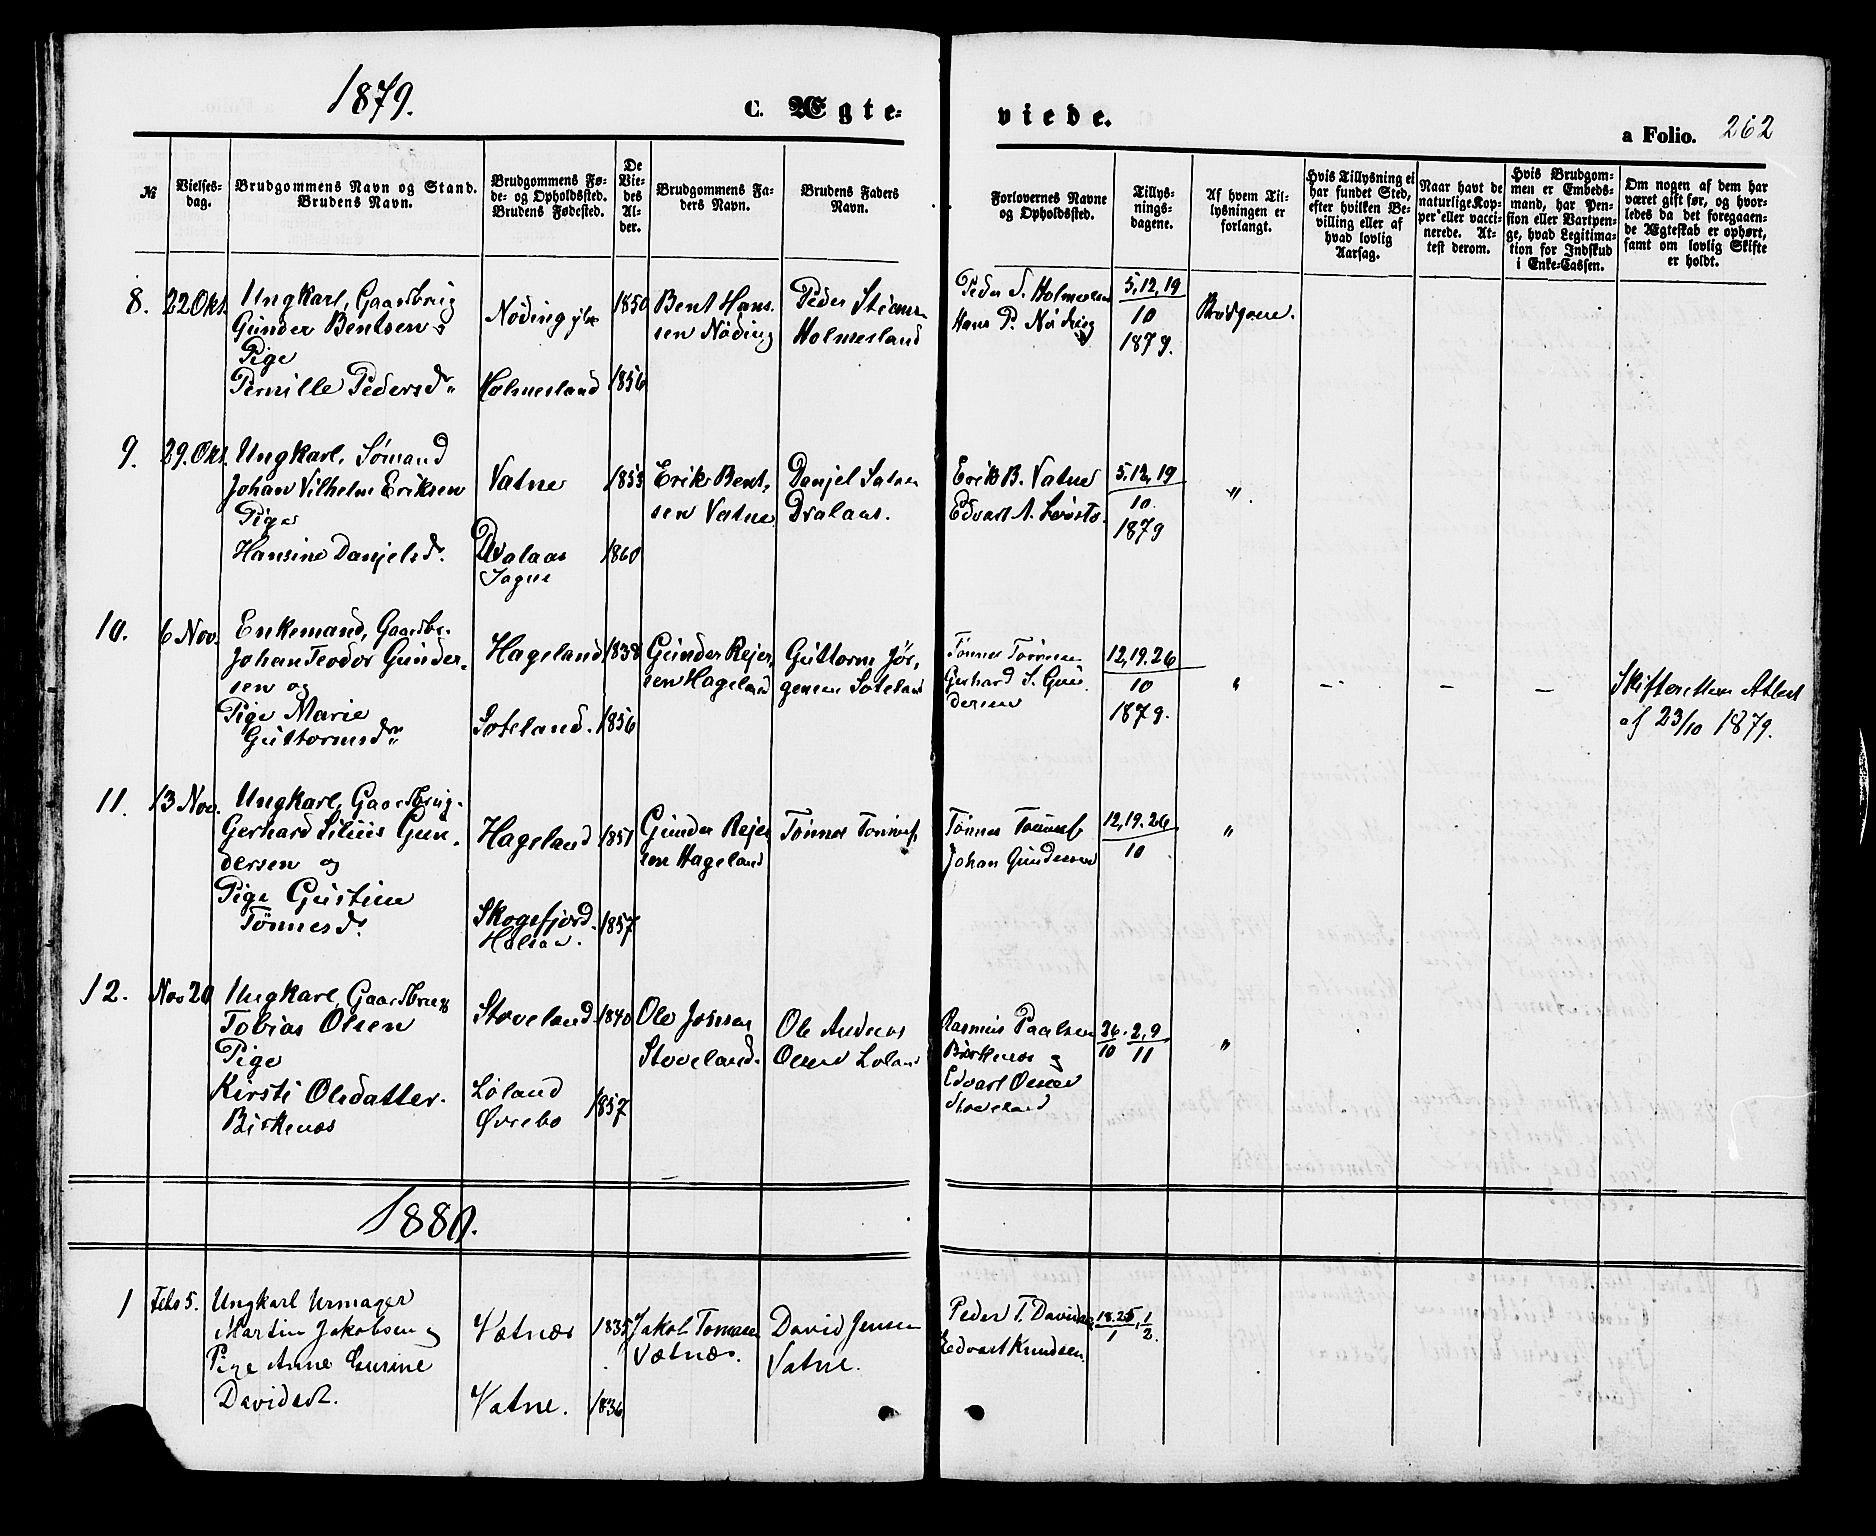 1879.
C. Ægte-
viede.
a Folio. 262
№
Vielses-
dag.
Brudgommens Navn og Stand.
Brudens Navn.
Brudgommens Fø-
de- og Opholdssted.
Brudens Fødested.
De
Vie-
des
Al-
der.
Brudgommens Fa-
ders Navn.
Brudens Faders
Navn.
Forlovernes Navne
og Opholdssted.
Tillys-
nings-
dagene.
Af hvem Til-
lysningen er
forlangt.
Hvis Tillysning ei
har fundet Sted,
efter hvilken Be-
villing eller af
hvad lovlig
Aarsag.
Naar havt de
naturlige Kop-
per eller vacci-
nerede. At-
test derom.
Hvis Brudgom-
men er Embeds-
mand, har Pen-
sion eller Vartpen-
ge, hvad Legitima-
tion for Indskud
i Enke-Cassen.
Om nogen af dem har
været gift før, og hvor-
ledes da det foregaaen-
de Ægteskab er ophørt,
samt om lovlig Skifte
er holdt.
8. 22 Okt.
Ungkarl, Gaardbrug
Gunder Bentsen
Pige
Pernille Pedersd.
Nøding
Holmesland
1850
1856
Bent Han-
sen Nøding
Peder
Holmesland
Peder S. Holmesland
Hans P. Nøding
5, 12, 19
10
1879.
9. 29. Okt.
Ungkarl, Sømand
Johan Vilhelm Eriksen
Pige
Hansine Danjelsd.
Vatne
Dvalaas
Sogne
1855
1860
Erik Bent-
sen Vatne
Danjel
Dvalaas.
Erik B. Vatne
Edvart A.
5, 12, 19
10.
1879
"
10. 6 Nov.
Enkemand, Gaardbr.
Johan Teodor Gunder-
sen og
Pige Marie
Guttormsd.
Hageland
Soteland.
1838
1856
Gunder Rejer-
sen Hageland
Guttorm Jør-
gensen Soteland
Tønnes
Gerhard S. Gun-
dersen
12, 19. 26
10
1879.
"
–
–
–
Skifterettens Attest
af 23/10 1879.
11. 13 Nov.
Ungkarl, Gaardbrug.
Gerhard Silius Gun-
dersen og
Pige Gustine
Tønnesd.
Hageland
Skogsfjord.
1851
1857
Gunder Rejer-
sen Hageland
Tønnes
Tønnes
Johan Gundersen
12, 19. 26
10
"
12. Nov 20
Ungkarl, Gaardbrug
Tobias Olsen
Pige
Kirsti Olsdatter.
Birkenæs
Stoveland.
Løland
Øvrebo
1840
1857
Ole
Stoveland.
Ole Andreas
Olsen Loland
Rasmus Paalsen
Birkenæs og
Edvart Olsen
Stoveland
26. 2, 9
10 11
"
1880.
1 Feb 5.
Ungkarl Urmager
Martin Jakobsen og
Pige Anne Gurine
Davidsd.
Vatnæs
Vatne.
1835
1836
Jakob
Vatnæs.
David Jensen
Vatne.
Peder T. Davidsen
Edvart Knudsen.
18. 25, 1
1 2.